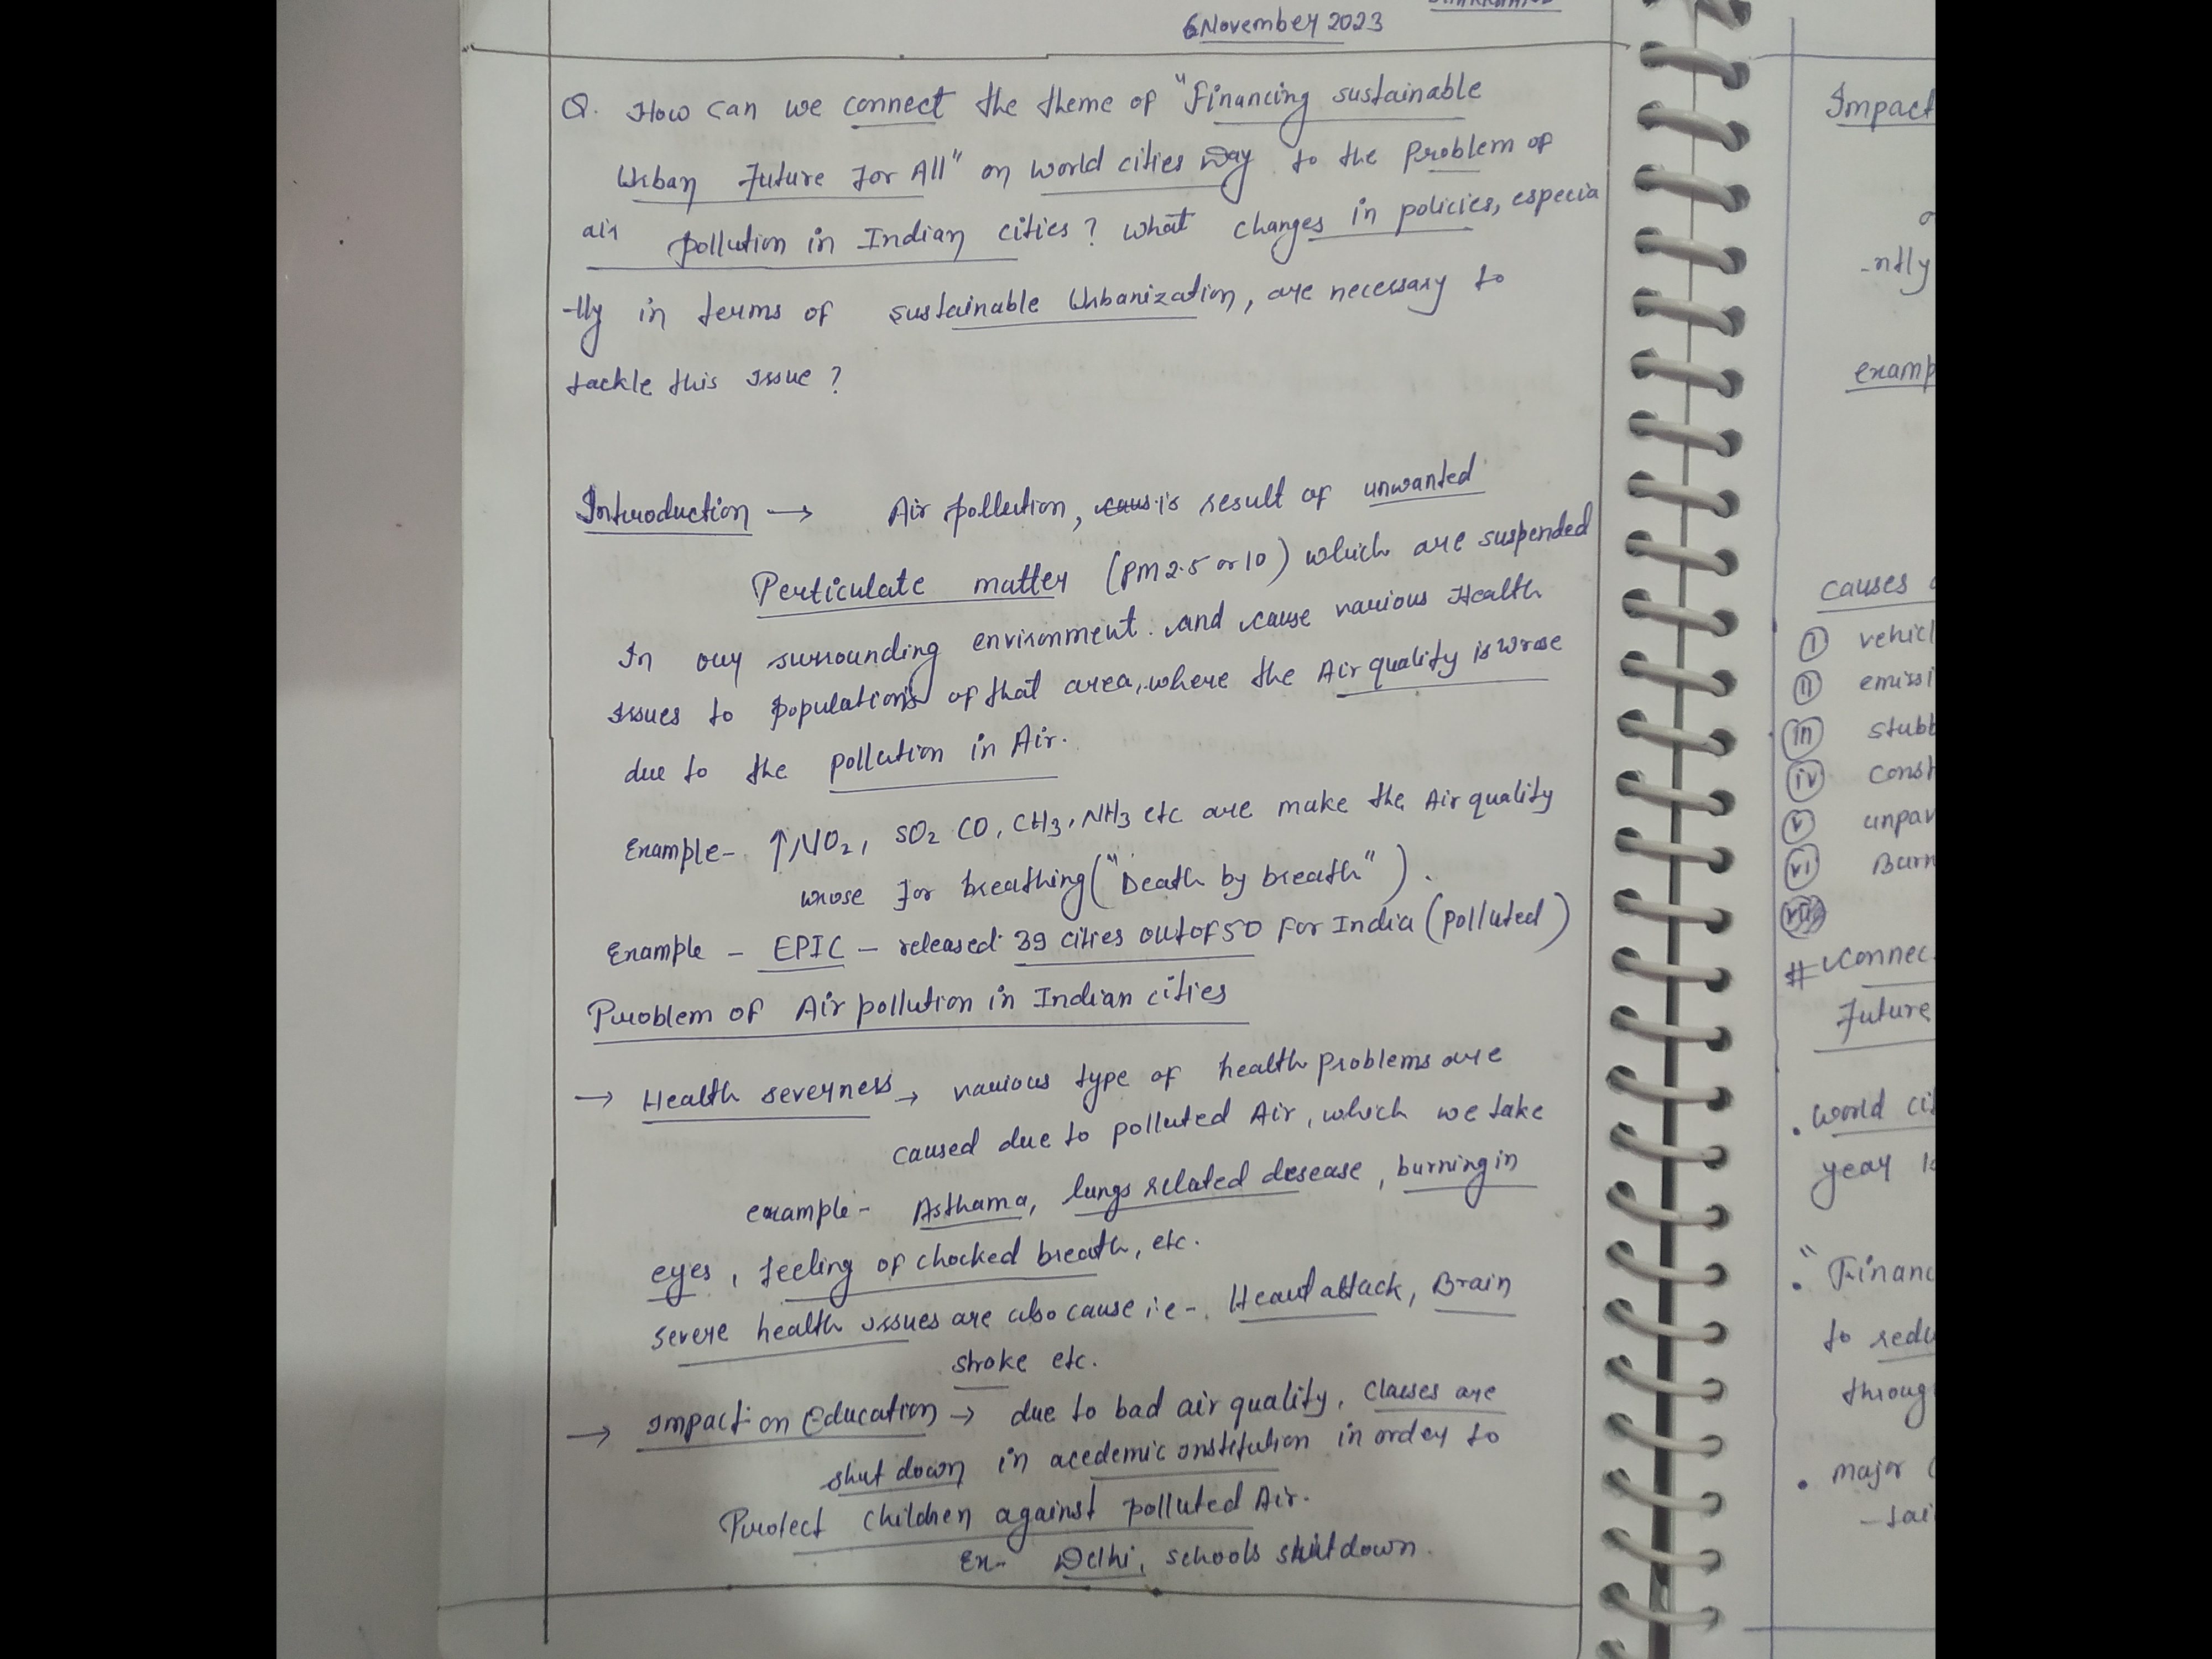 6 November 2023
Q. How can we connect the theme of "Financing sustainable
Urban Future For All" on world cities Day to the problem of
air pollution in Indian cities? What changes in policies, especia
-lly in terms of sustainable Urbanization, are necessary to
tackle this issue?
Introduction → Air pollution, is result of unwanted
Perticulate matter (PM 2.5 or 10) which are suspended
In our surrounding environment. and cause various Health
issues to populations of that area, where the Air quality is wrose
due to the pollution in Air.
Example- ↑NO2, SO2 CO, CH3, NH3 etc are make the Air quality
wrose for breathing ("Death by breath").
Example - EPIC - released 39 cities out of 50 For India (polluted)
Problem of Air pollution in Indian cities
→ Health severness → various type of health problems are
caused due to polluted Air, which we take
example- Asthama, lungs related desease, burning in
eyes, feeling of chocked breath, etc.
severe health issues are also cause i.e- Heart attack, Brain
stroke etc.
→ Impact on Education → due to bad air quality, Classes are
shut down in acedemic institution in order to
Protect Children against polluted Air.
Ex- Delhi, schools shutdown.
Impact
-ntly
examp
causes
(i) vehicl
(ii) emissi
(iii) stubb
(iv) const
(v) unpav
(vi) Burn
# Connec
Future
• World cit
year
• "Financ
to redu
throug
• major
-tai